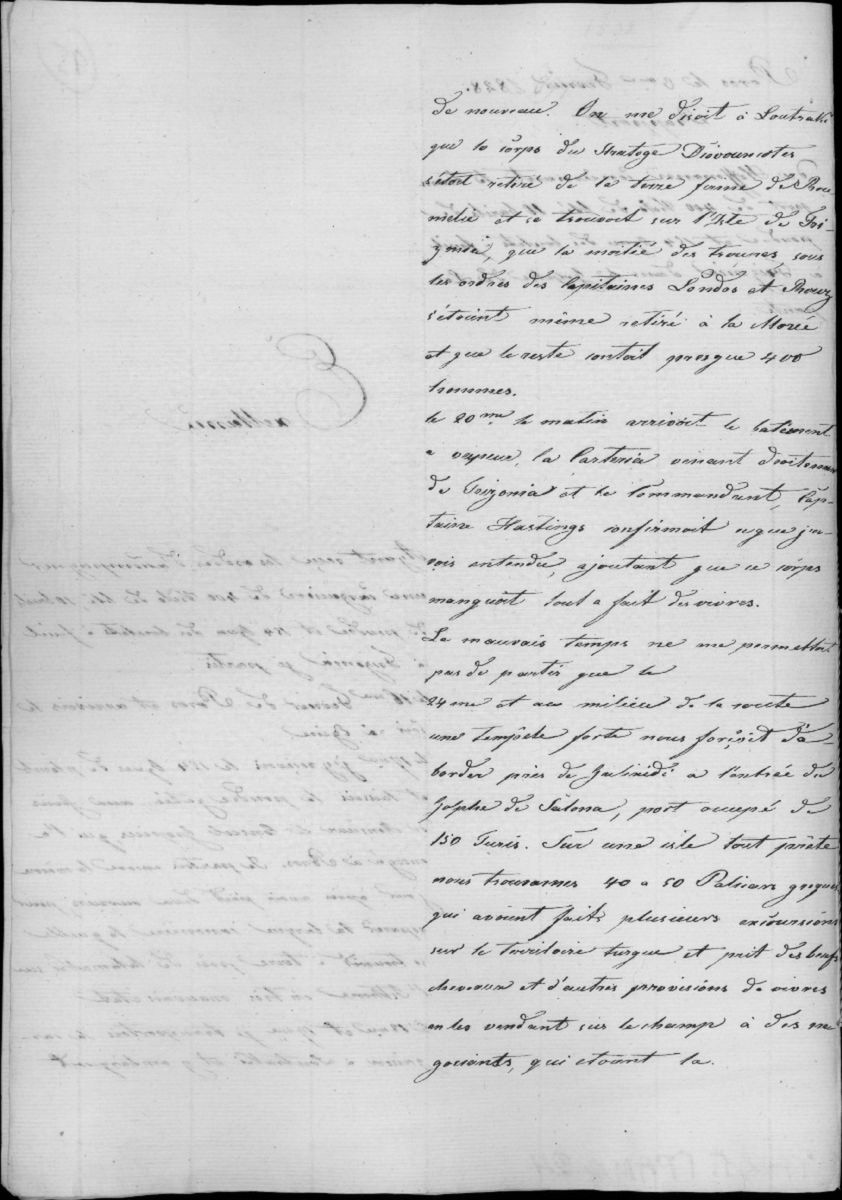 de nouveau. On me disoit à Loutraki
que le corps du Stratege Diovouniotes
s'étoit retiré de la terre ferme de Rou
melie et se trouvoit sur l'Isle de Tri-
zonie, que la moitié des troupes sous
les ordres des Capitaines Londos et
s'étoient même retiré à la Morée
et que le reste contoit presque 400
hommes.
le 20me le matin arrivoit le batiment
a vapeur, la Carteria venant droitement
de Trizonia et le Commandant, Cap-
taine Hastings confirmoit ce que j'a-
vois entendu, ajoutant que ce corps
manquoit tout a fait des vivres.
Le mauvais temps ne me permettoit
pas de partir que le
24me et au milieu de la route
une tempête forte nous forçoit d'a-
border près de Galixidi a l'entrée du
Golphe de Salona, port occupé de
150 Turcs. Sur une isle tout prète
nous trouvames 40 a 50 Palicars grques
qui avoient faits plusieurs excursions
sur le territoire turque et prit des beufs
chevaux et d'autres provisions de vivres
en les vendant sur le champ à des ne
gociants, qui etoient la.